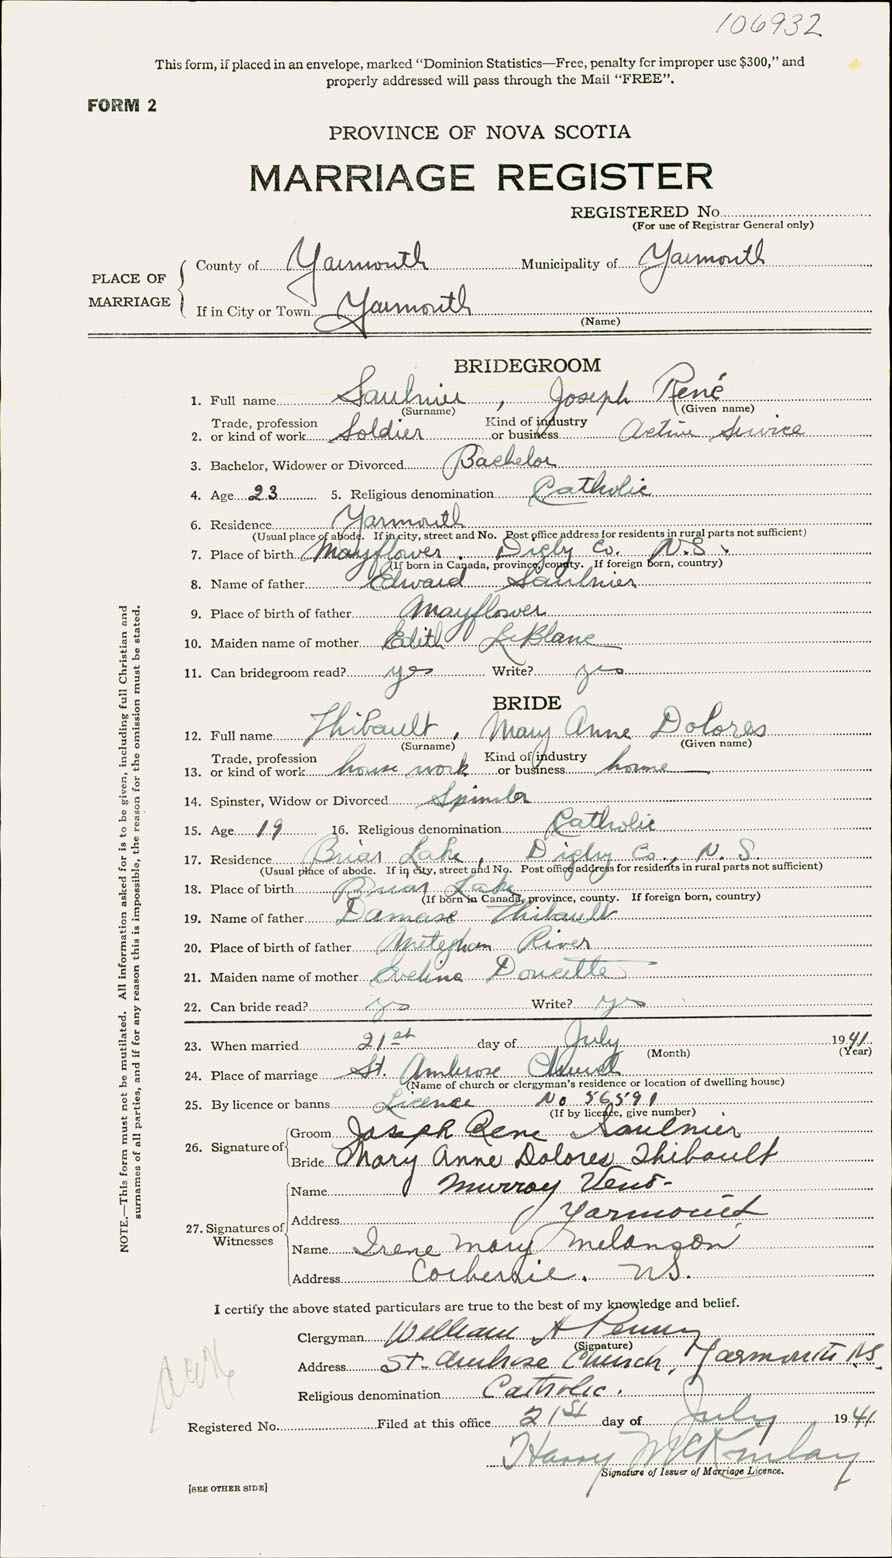 106932
This form, if placed in an envelope, marked "Dominion Statistics—Free, penalty for improper use $300," and
properly addressed will pass through the Mail "FREE".
FORM 2
PROVINCE OF NOVA SCOTIA
MARRIAGE REGISTER
REGISTERED No.
(For use of Registrar General only)
PLACE OF MARRIAGE
County of Yarmouth Municipality of Yarmouth
If in City or Town Yarmouth
(Name)
BRIDEGROOM
1. Full name Saulnier, Joseph René
(Surname) (Given name)
2. Trade, profession or kind of work Soldier Kind of industry or business Active Service
3. Bachelor, Widower or Divorced Bachelor
4. Age 23 5. Religious denomination Catholic
6. Residence Yarmouth
(Usual place of abode. If in city, street and No. Post office address for residents in rural parts not sufficient)
7. Place of birth Mayflower, Digby Co. N.S.
(If born in Canada, province, county. If foreign born, country)
8. Name of father Edward Saulnier
9. Place of birth of father Mayflower
10. Maiden name of mother Edith LeBlanc
11. Can bridegroom read? yes Write? yes
BRIDE
12. Full name Thibault, Mary Anne Dolores
(Surname) (Given name)
13. Trade, profession or kind of work house work Kind of industry or business home
14. Spinster, Widow or Divorced Spinster
15. Age 19 16. Religious denomination Catholic
17. Residence Briar Lake, Digby Co., N.S.
(Usual place of abode. If in city, street and No. Post office address for residents in rural parts not sufficient)
18. Place of birth Briar Lake
(If born in Canada, province, county. If foreign born, country)
19. Name of father Damase Thibault
20. Place of birth of father Meteghan River
21. Maiden name of mother Evelina Doucette
22. Can bride read? yes Write? yes
23. When married 21st day of July 1941
(Month) (Year)
24. Place of marriage St. Ambrose Church
(Name of church or clergyman's residence or location of dwelling house)
25. By licence or banns Licence No 56591
(If by licence, give number)
26. Signature of Groom Joseph Rene Saulnier
Bride Mary Anne Dolores Thibault
27. Signatures of Witnesses
Name Murray
Address Yarmouth
Name Irene Mary Melanson
Address Corberrie, N.S.
I certify the above stated particulars are true to the best of my knowledge and belief.
Clergyman William A Penny
(Signature)
Address St. Ambrose Church, Yarmouth N.S.
Religious denomination Catholic.
Registered No. Filed at this office 21st day of July 1941
Harry McKinlay
Signature of Issuer of Marriage Licence.
[SEE OTHER SIDE]
NOTE.—This form must not be mutilated. All information asked for is to be given, including full Christian and
surnames of all parties, and if for any reason this is impossible, the reason for the omission must be stated.